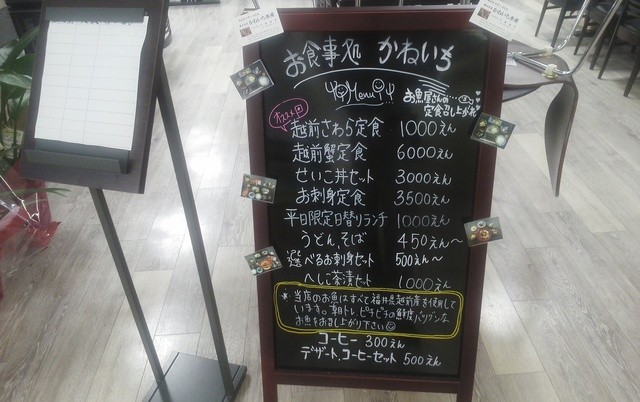 お食事処 かねいち
Menu
お魚屋さんの…
定食召し上がれ
オススメ
越前さわら定食 1000えん
越前蟹定食 6000えん
せいこ丼セット 3000えん
お刺身定食 3500えん
平日限定日替りランチ 1000えん
うどん、そば 450えん～
選べるお刺身セット 500えん～
へしこ茶漬セット 1000えん
★当店のお魚はすべて福井県越前産を使用して
います。朝トレ、ピチピチの鮮度バツグンな
お魚をお召し上がり下さい
コーヒー 300えん
デザート、コーヒーセット 500えん